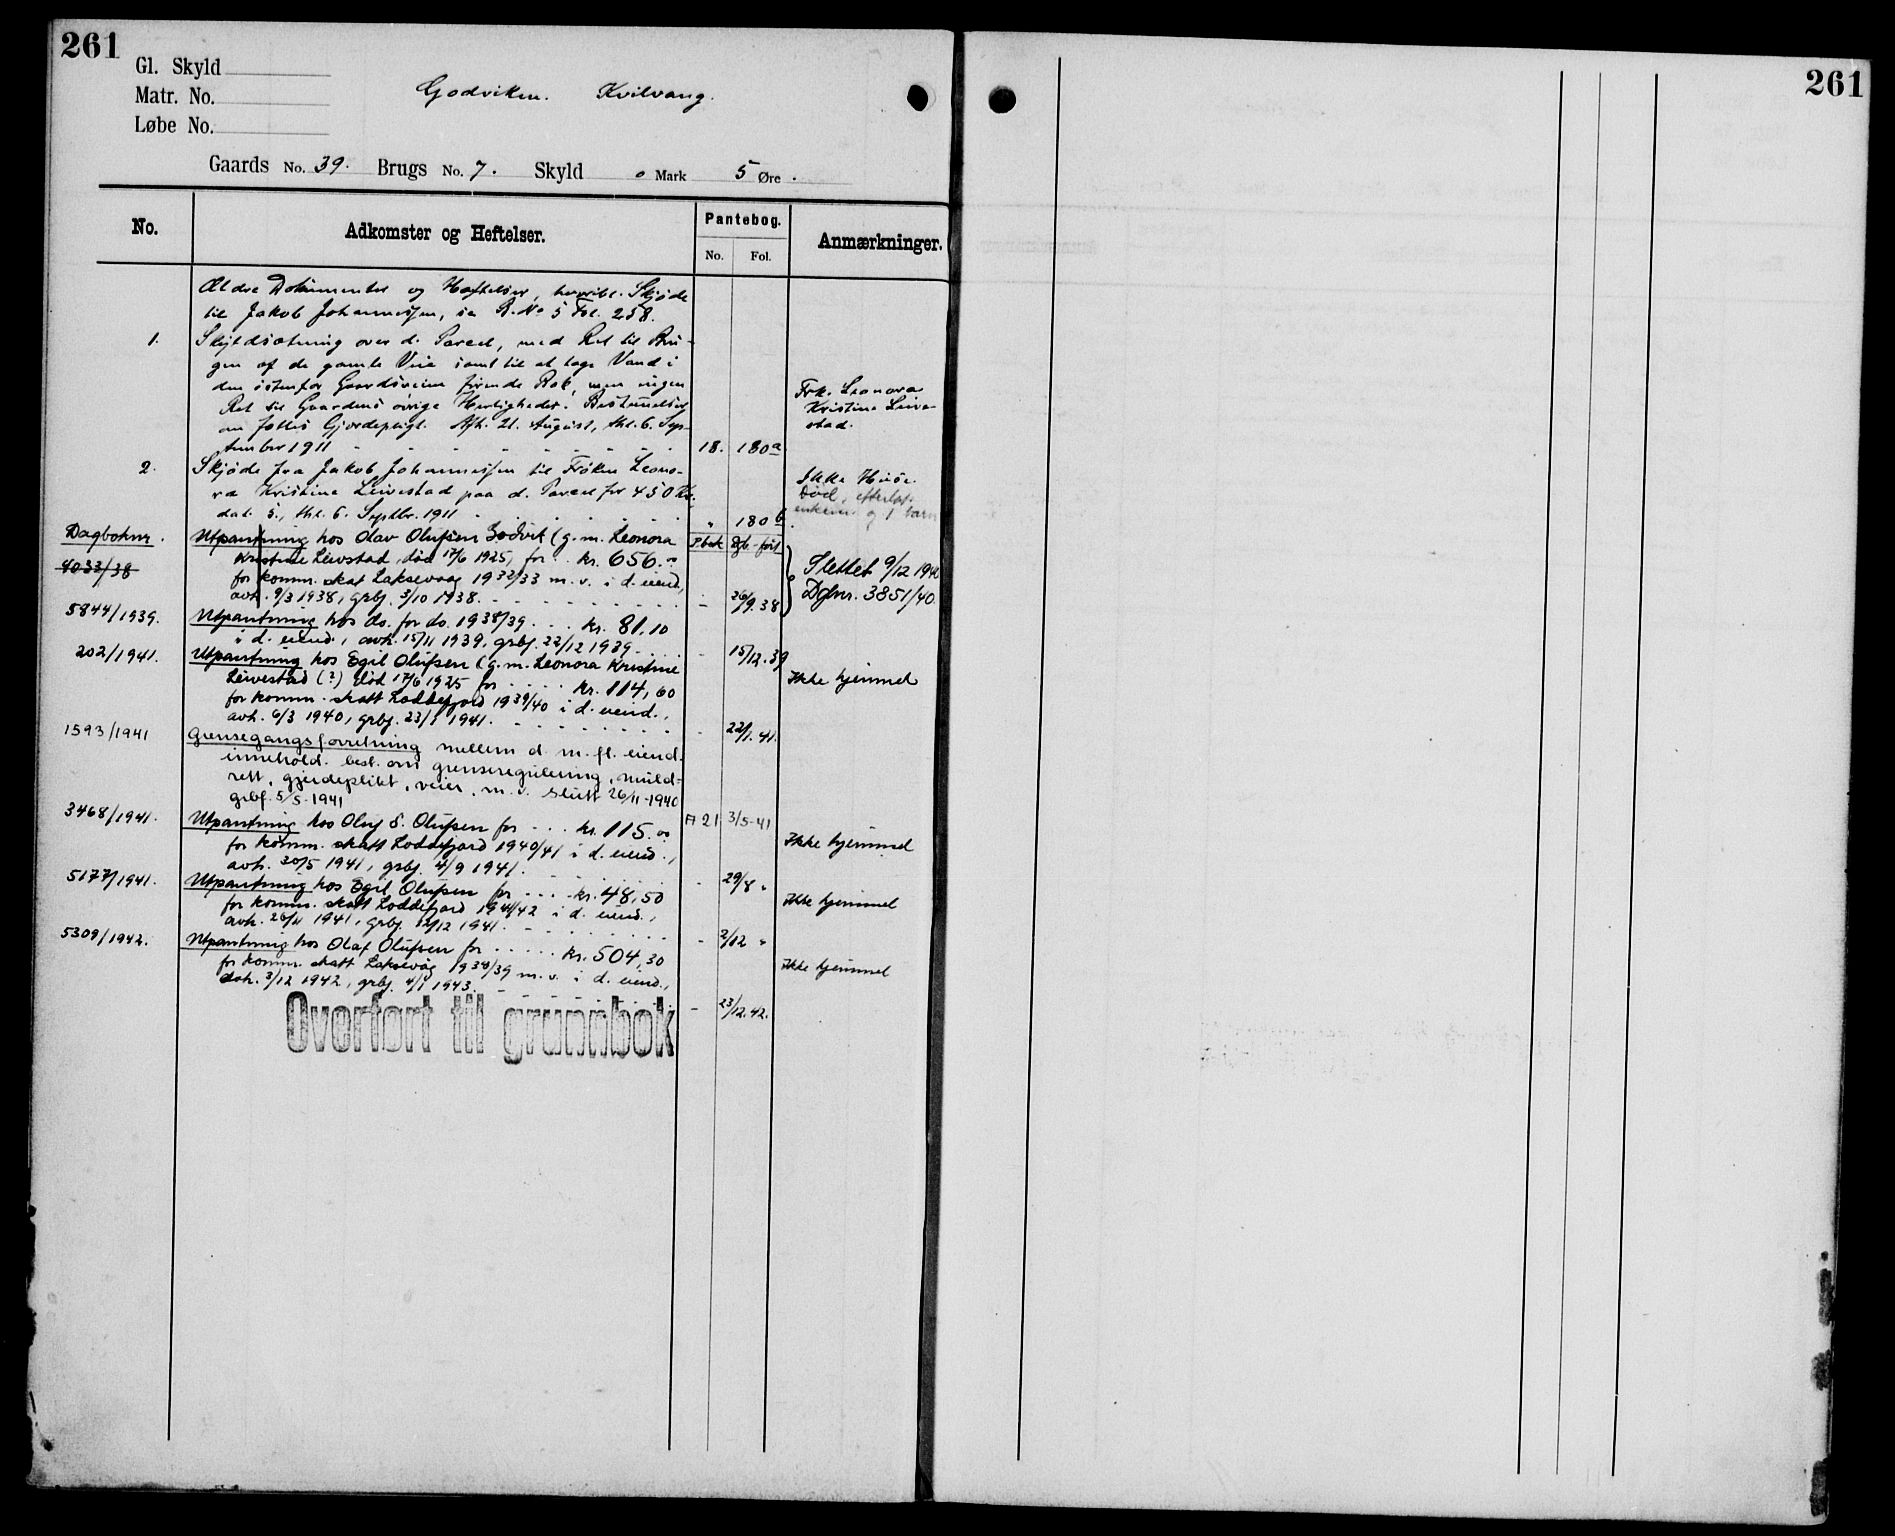 261
261
Gl. Skyld
Matr. No.
Løbe No.
Godviken. Kvilvang.
Gaards No. 39. Brugs No. 7. Skyld 0 Mark 5 Øre.
No.
Adkomster og Heftelser.
Pantebog.
No. Fol.
Anmærkninger.
Ældre Dokumenter og Heftelser, hvoribl. Skjøde
til Jakob Johannessen, se R. No 5 Fol. 258.
1. Skyldsætning over d. Parcel, med Ret til Bru-
gen af de gamle Veie samt til at tage Vand i
den østenfor Gaardsveien 
 men ingen
Ret til Gaardens øvrige Herligheder. Bestemmelser
om fælles Gjerdepligt. Afh. 21. August, thl. 6. Sep-
tember 1911 - 18. 180a
Frk. Leonora
Kristine Leive-
stad.
2. Skjøde fra Jakob Johannessen til Frøken Leono-
ra Kristine Leivestad paa d. Parcel for 450 Kr.
dat. 5., thl. 6. Septbr. 1911 - " 180b
Ikke Huse.
Død, efterlot
enkem. og 1 barn
Dagboknr. Utpantning hos Olav Olufsen Godvik (g. m. Leonora P.bok Dgb-ført
4033/38 Kristine Leivstad, død 17/6 1925, for .. kr. 656.00
for komm. skat Laksevaag 1932/33 m. v. i d. eiend.,
avh. 9/3 1938, grbf. 3/10 1938. - 26/9.38
5844/1939. Utpantning hos do. for do. 1938/39 ... kr. 81,10
i d. eiend., avh. 15/11 1939, grbf. 22/12 1939 - 15/12.39
Slettet 9/12 1940
Dgbnr. 3851/40.
202/1941. Utpantning hos Egil Olufsen (g. m. Leonora Kristine
Leivestad (?) død 17/6 1925 for ..... kr. 114,60
for komm. skatt Loddefjord 1939/40 i d. eiend.,
avh. 6/3 1940, grbf. 23/1 1941. - 22/1.41.
Ikke hjemmel
1593/1941 Grensegangsforretning mellem d. m. fl. eiend.
innehold. best. om grenseregulering, muld-
rett, gjerdeplikt, veier, m. v. slutt 26/11-1940
grbf. 5/5-1941 A 21 3/5-41
3468/1941. Utpantning hos Oluf S. Olufsen for ... kr. 115.00
for komm. skatt Loddefjord 1940/41 i d. eiend.,
avh. 30/5 1941, grbf. 4/9 1941. - 29/8 "
Ikke hjemmel
5177/1941. Utpantning hos Egil Olufsen for .... kr. 48,50
for komm. skatt Loddefjord 1941/42 i d. eiend.,
avh. 26/11 1941, grbf. 12/12 1941. - 2/12 "
Ikke hjemmel
5309/1942. Utpantning hos Olaf Olufsen for ..... kr. 504,30
for komm. skatt Laksevåg 1938/39 m. v. i d. eiend.,
avh. 3/12 1942, grbf. 4/1 1943. - 23/12.42.
Ikke hjemmel
Overført til grunnbok